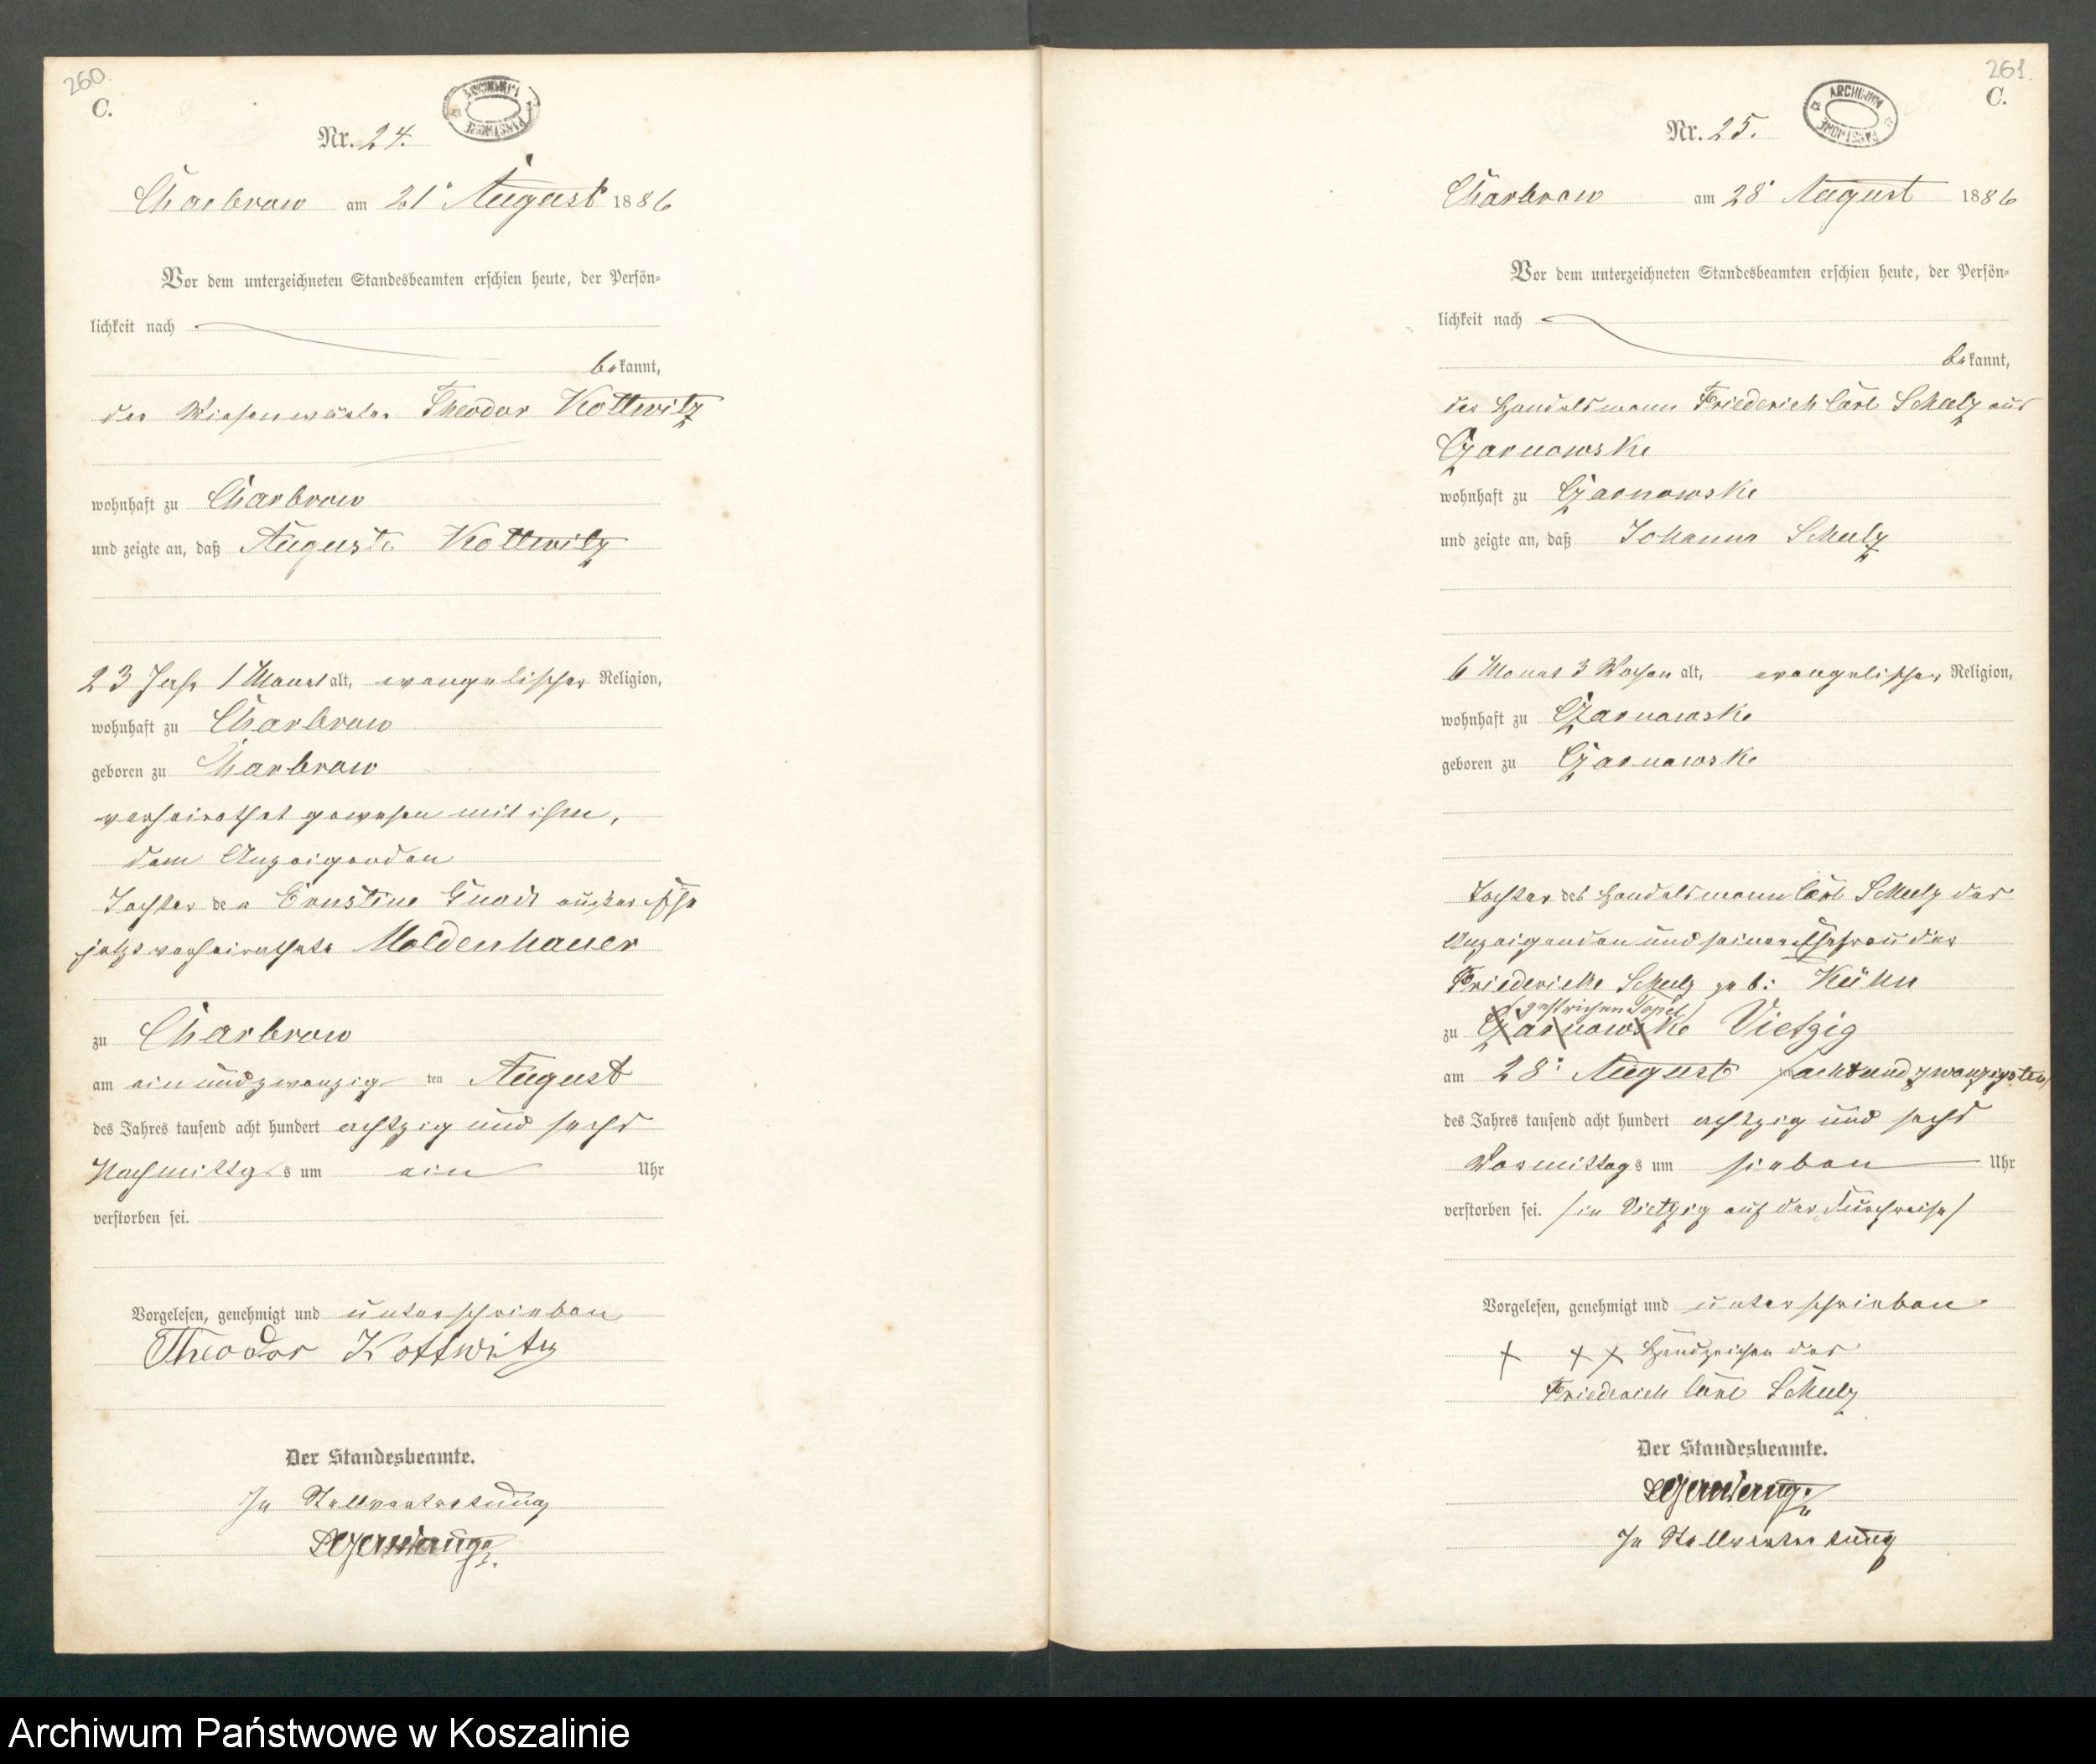 260.
C.
ARCHIWUM PAŃSTWOWE
Nr. 24.
Charbrow am 21. August 1886
Vor dem unterzeichneten Standesbeamten erschien heute, der Persön-
lichkeit nach
bekannt,
der Wiesenwärter Theodor Kottwitz
wohnhaft zu Charbrow
und zeigte an, daß Auguste Kottwitz
23 Jahr 1 Monat alt, evangelischer Religion,
wohnhaft zu Charbrow
geboren zu Charbrow
verheirathet gewesen mit ihm,
dem Anzeigenden
Tochter der Ernstine außer Ehe
jetzt verheirathete Moldenhauer
zu Charbrow
am einundzwanzig ten August
des Jahres tausend acht hundert achtzig und sechs
Nachmittgs um ein Uhr
verstorben sei.
Vorgelesen, genehmigt und unterschrieben
Theodor Kottwitz
Der Standesbeamte.
In Stellvertretung
261.
C.
ARCHIWUM PAŃSTWOWE
Nr. 25.
Charbrow am 28. August 1886
Vor dem unterzeichneten Standesbeamten erschien heute, der Persön-
lichkeit nach
bekannt,
der Handelsmann Friederich Carl Schulz aus
Czarnowske
wohnhaft zu Czarnowske
und zeigte an, daß Johanna Schulz
6 Monat 3 Wochen alt, evangelischer Religion,
wohnhaft zu Czarnowske
geboren zu Czarnowske
Tochter des Handelsmann Carl Schulz des
Anzeigenden und seiner Ehefrau der
Friedericke Schulz geb: Kühn
gestrichen
zu Czarnowske Vietzig
am 28: August /achtundzwanzigsten/
des Jahres tausend acht hundert achtzig und sechs
Vormittags um sieben Uhr
verstorben sei. /in Vietzig auf der Durchreise/
Vorgelesen, genehmigt und unterschrieben
+ + + Handzeichen des
Friederich Carl Schulz
Der Standesbeamte.
In Stellvertretung
Archiwum Państwowe w Koszalinie